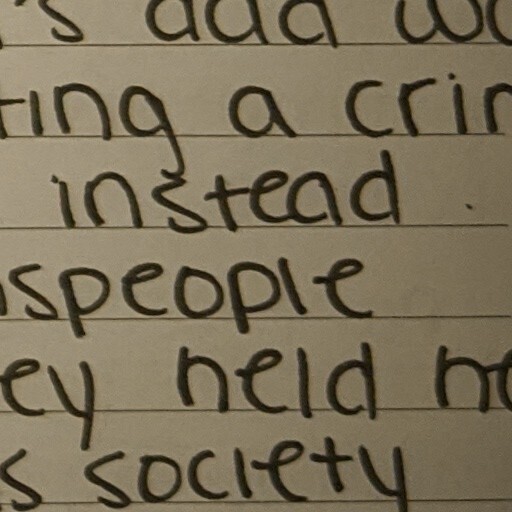 's dad wo
ting a crin
instead.
speople
ey held no
s society